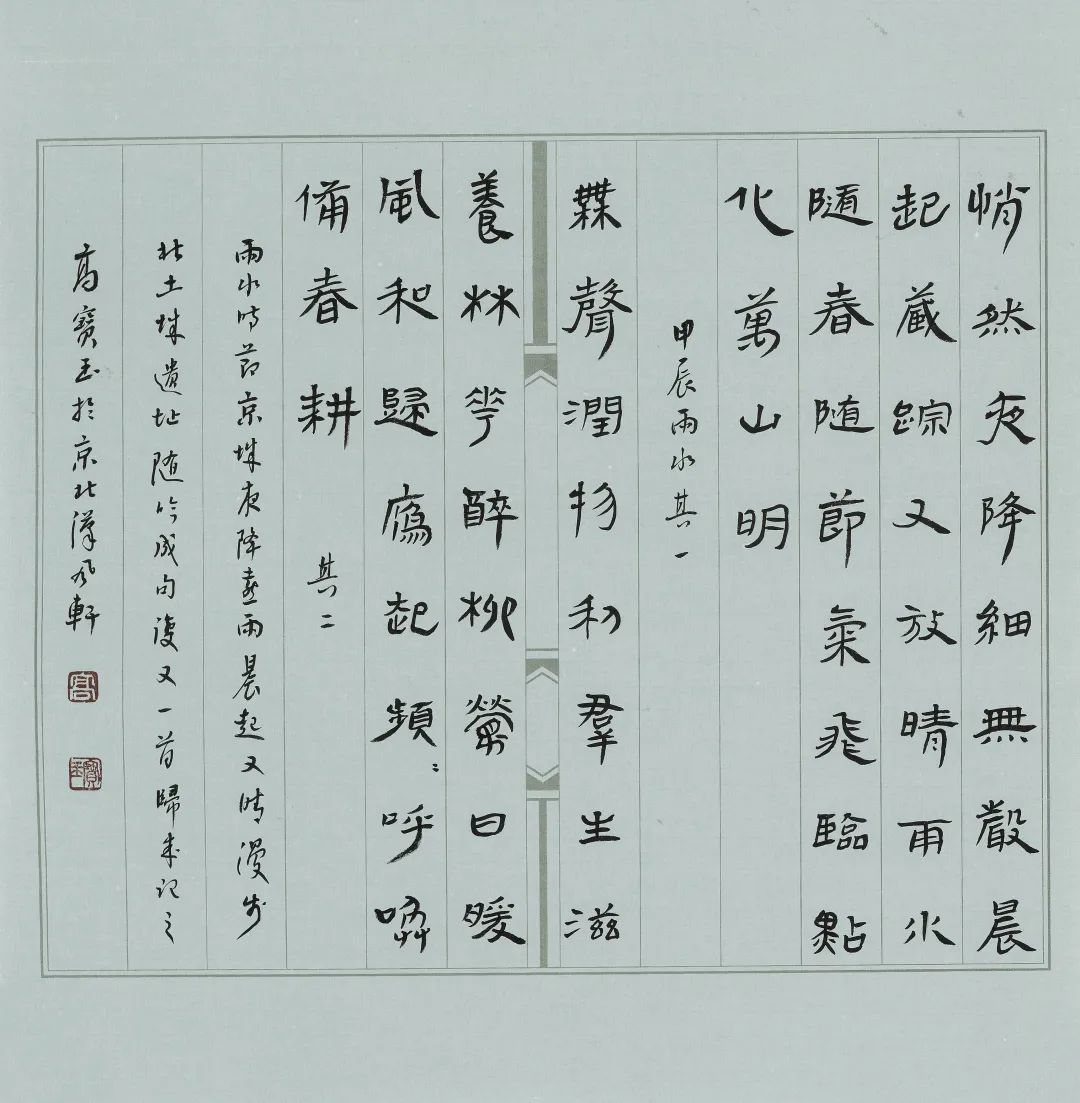 悄然夜降細無聲晨
起蔵踪又放晴雨水
隨春随節氣飛臨點
化萬山明
甲辰雨水其一
無聲潤物利羣生滋
養林花醉柳鶯日暖
風和歸鴈起頻〻呼喚
備春耕 其二
雨水時節京城夜降喜雨晨起又晴漫步
北土城遺址随吟成句復又一首歸来記之
高寶玉於京北漢風軒
高
寶玉